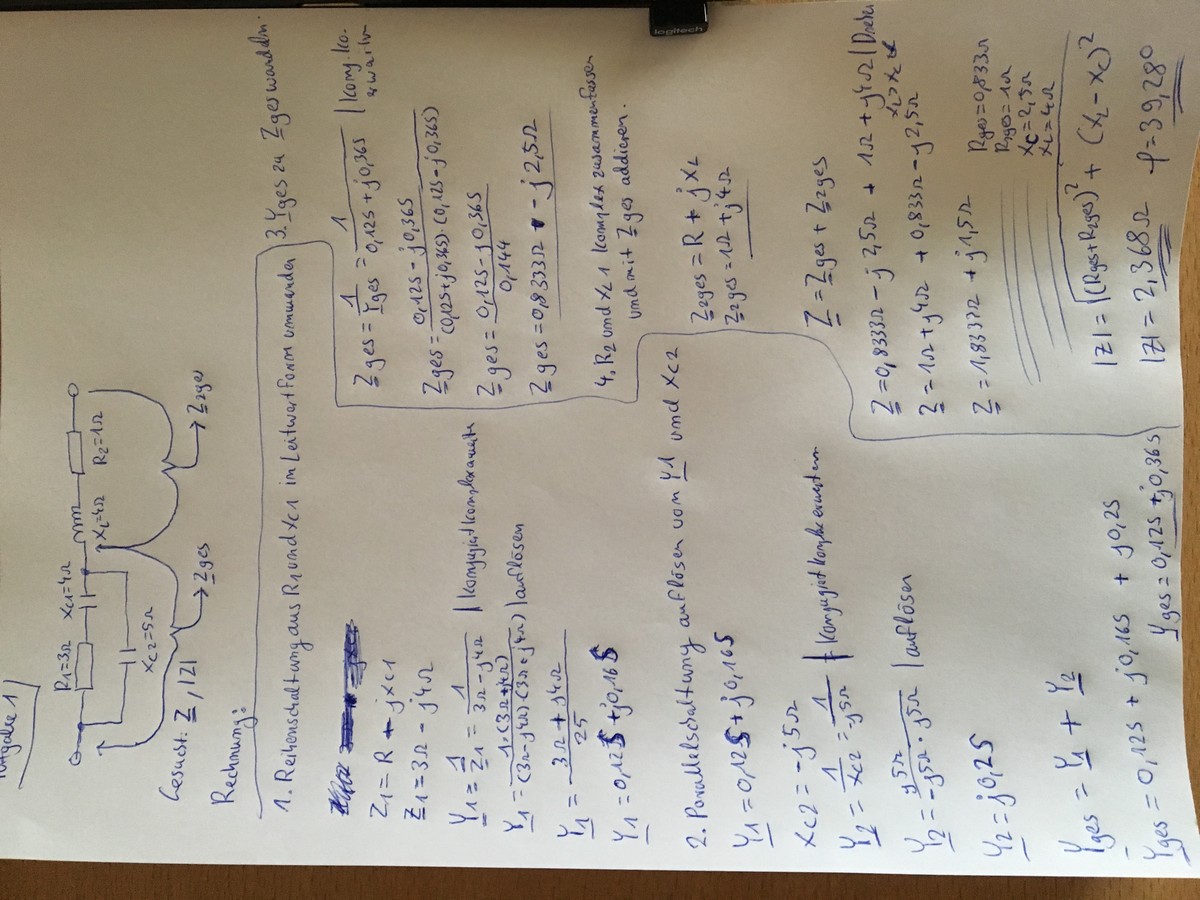 Aufgabe 1
R1=3Ω XC1=4Ω
XC2=5Ω
XL=4Ω R2=1Ω
Zges Z2ges
Gesucht: Z, |Z|
Rechnung:
1. Reihenschaltung aus R1 und XC1 im Leitwertform umwandeln
Z1 = R - jXC1
Z1 = 3Ω - j4Ω
Y1 = 1/Z1 = 1/(3Ω - j4Ω) | konjugiert komplex erweitern
Y1 = 1·(3Ω+j4Ω)/((3Ω-j4Ω)·(3Ω+j4Ω)) | auflösen
Y1 = (3Ω + j4Ω)/25
Y1 = 0,12S + j0,16S
2. Parallelschaltung auflösen von Y1 und XC2
Y1 = 0,12S + j0,16S
XC2 = -j5Ω
Y2 = 1/XC2 = 1/-j5Ω | konjugiert komplex erweitern
Y2 = j5Ω/(-j5Ω · j5Ω) | auflösen
Y2 = j0,2S
Yges = Y1 + Y2
Yges = 0,12S + j0,16S + j0,2S
Yges = 0,12S + j0,36S
3. Yges zu Zges wandeln.
Zges = 1/Yges = 1/(0,12S + j0,36S) | konj. ko. erweitern
Zges = (0,12S - j0,36S)/((0,12S+j0,36S)·(0,12S-j0,36S))
Zges = (0,12S - j0,36S)/0,144
Zges = 0,8333Ω - j2,5Ω
4. R2 und XL1 komplex zusammenfassen
und mit Zges addieren.
Z2ges = R + jXL
Z2ges = 1Ω + j4Ω
Z = Zges + Z2ges
Z = 0,8333Ω - j2,5Ω + 1Ω + j4Ω | Drehen
XL > XC
Z = 1Ω + j4Ω + 0,833Ω - j2,5Ω
Z = 1,8333Ω + j1,5Ω
Rges = 0,833Ω
R2ges = 1Ω
XC = 2,5Ω
XL = 4Ω
|Z| = √((Rges+R2ges)² + (XL - XC)²)
|Z| = 2,368Ω φ = 39,28°
logitech